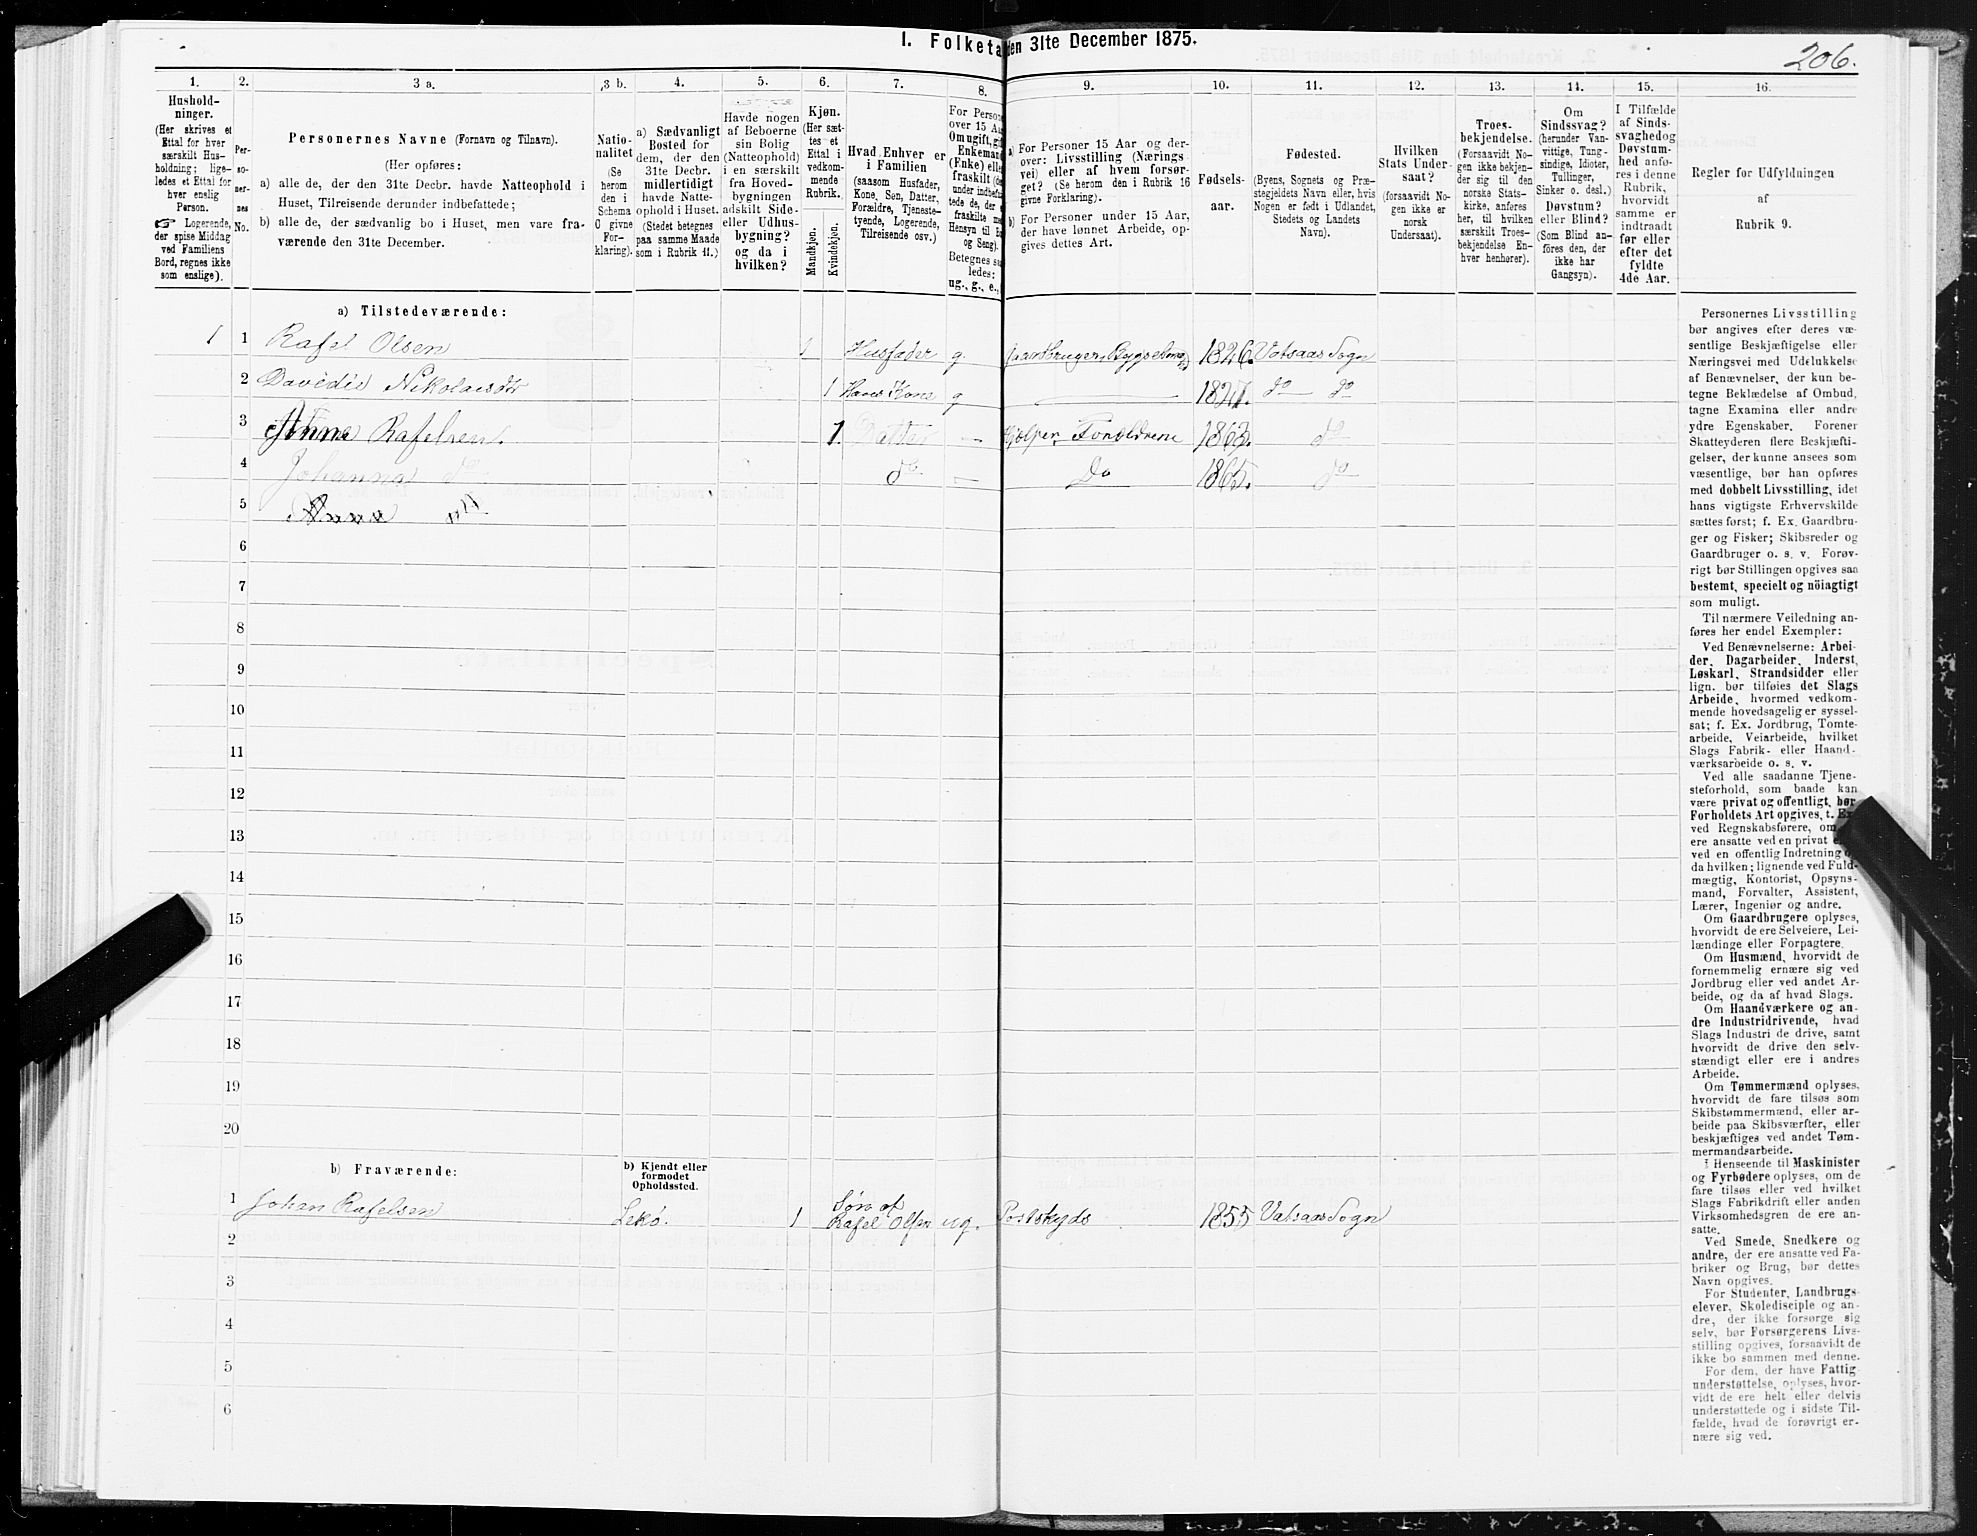 I. Folketa en 31te December 1875.
206.
1. 2. 3 a. 3 b. 4. 5. 6. 7. 8. 9. 10. 11. 12. 13. 14. 15. 16.
Hushold-
ninger.
(Her skrives et
Ettal for hver
særskilt Hus-
holdning; lige-
ledes et Ettal for
hver enslig
Person.
☞ Logerende,
der spise Middag
ved Familiens
Bord, regnes ikke
som enslige).
Per-
so-
ner-
nes
No.
Personernes Navne (Fornavn og Tilnavn).
(Her opføres:
a) alle de, der den 31te Decbr. havde Natteophold i
Huset, Tilreisende derunder indbefattede;
b) alle de, der sædvanlig bo i Huset, men vare fra-
værende den 31te December.
Natio-
nalitet
(Se
herom
den i
Schema
O givne
For-
klaring).
a) Sædvanligt
Bosted for
dem, der den
31te Decbr.
midlertidigt
havde Natte-
ophold i Huset.
(Stedet betegnes
paa samme Maade
som i Rubrik 11.)
Havde nogen
af Beboerne
sin Bolig
(Natteophold)
i en særskilt
fra Hoved-
bygningen
adskilt Side-
eller Udhus-
bygning?
og da i
hvilken?
Kjøn.
(Her sæt-
tes et
Ettal i
vedkom-
mende
Rubrik.
Mandkjøn.
Kvindekjøn.
Hvad Enhver er
i Familien
(saasom Husfader,
Kone, Søn, Datter,
Forældre, Tjeneste-
tyende, Logerende,
Tilreisende osv.)
For Person
over 15 Aa
Omugift, gi
Enkemand
(Enke) elle
fraskilt (de
under indbefat
tede de, der e
fraskilte me
Hensyn til Bo
og Seng).
Betegnes sa
ledes:
ug., g., e.,
a) For Personer 15 Aar og der-
over: Livsstilling (Nærings-
vei) eller af hvem forsør-
get? (Se herom den i Rubrik 16
givne Forklaring).
b) For Personer under 15 Aar,
der have lønnet Arbeide, op-
gives dettes Art.
Fødsels-
aar.
Fødested.
(Byens, Sognets og Præ-
stegjeldets Navn eller, hvis
Nogen er født i Udlandet,
Stedets og Landets
Navn).
Hvilken
Stats Under-
saat?
(forsaavidt No-
gen ikke er
norsk
Undersaat).
Troes-
bekjendelse.
(Forsaavidt No-
gen ikke bekjen-
der sig til den
norske Stats-
kirke, anføres
her, til hvilken
særskilt Troes-
bekjendelse En-
hver henhører).
Om
Sindssvag?
(herunder Van-
vittige, Tung-
sindige, Idioter,
Tullinger,
Sinker o. desl.)
Døvstum?
eller Blind?
(Som Blind an-
føres den, der
ikke har
Gangsyn).
I Tilfælde
af Sinds-
svaghedog
Døvstum-
hed anfø-
res i denne
Rubrik,
hvorvidt
samme er
indtraadt
før eller
efter det
fyldte
4de Aar.
Regler for Udfyldningen
af
Rubrik 9.
a) Tilstedeværende:
1 1 Rafel Olsen 1 Husfader g. Gaardbruger, Bygselmd 1826. Vatsaas Sogn
2 Davidie Nikolaisdtr 1 Hans Kone g 1827. do do
3 Anne Rafelsen. 1. Datter Hjælper Forældrene 1863. do
4 Johanna do do Do 1865. do
5 Anna
6
7
8
9
10
11
12
13
14
15
16
17
18
19
20
b) Fraværende:
b) Kjendt eller
formodet
Opholdssted.
1 Johan Rafelsen Lekø. 1 Søn af
Rafel Olsen ug. Postskyds 1855 Vatsaas Sogn
2
3
4
5
6
Personernes Livsstilling
bør angives efter deres væ-
sentlige Beskjæftigelse eller
Næringsvei med Udelukkelse
af Benævnelser, der kun be-
tegne Beklædelse af Ombud,
tagne Examina eller andre
ydre Egenskaber. Forener
Skatteyderen flere Beskjæfti-
gelser, der kunne ansees som
væsentlige, bør han opføres
med dobbelt Livsstilling, idet
hans vigtigste Erhvervskilde
sættes først; f. Ex. Gaardbru-
ger og Fisker; Skibsreder og
Gaardbruger o. s. v. Forøv-
rigt bør Stillingen opgives saa
bestemt, specielt og nöiagtigt
som muligt.
Til nærmere Veiledning an-
føres her endel Exempler:
Ved Benævnelserne: Arbei-
der, Dagarbeider, Inderst,
Løskarl, Strandsidder eller
lign. bør tilføies det Slags
Arbeide, hvormed vedkom-
mende hovedsagelig er syssel-
sat; f. Ex. Jordbrug, Tomte-
arbeide, Veiarbeide, hvilket
Slags Fabrik- eller Haand-
værksarbeide o. s. v.
Ved alle saadanne Tjene-
steforhold, som baade kan
være privat og offentligt, bør
Forholdets Art opgives, t. Ex.
ved Regnskabsførere, om
ere ansatte ved en privat e
ved en offentlig Indretning o
da hvilken; lignende ved Fuld-
mægtig, Kontorist, Opsyns-
mand, Forvalter, Assistent,
Lærer, Ingeniør og andre.
Om Gaardbrugere oplyses,
hvorvidt de ere Selveiere, Lei-
lændinge eller Forpagtere.
Om Husmænd, hvorvidt de
fornemmelig ernære sig ved
Jordbrug eller ved andet Ar-
beide, og da af hvad Slags.
Om Haandværkere og an-
dre Industridrivende, hvad
Slags Industri de drive, samt
hvorvidt de drive den selv-
stændigt eller ere i andres
Arbeide.
Om Tømmermænd oplyses,
hvorvidt de fare tilsøs som
Skibstømmermænd, eller ar-
beide paa Skibsværfter, eller
beskjæftiges ved andet Tøm-
mermandsarbeide.
I Henseende til Maskinister
og Fyrbødere oplyses, om de
fare tilsøs eller ved hvilket
Slags Fabrikdrift eller anden
Virksomhedsgren de ere an-
satte.
Ved Smede, Snedkere og
andre, der ere ansatte ved Fa-
briker og Brug, bør dettes
Navn opgives.
For Studenter, Landbrugs-
elever, Skoledisciple og an-
dre, der ikke forsørge sig
selv, bør Forsørgerens Livs-
stilling opgives, forsaavidt de
ikke bo sammen med denne.
For dem, der have Fattig-
understøttelse, oplyses, hvor-
vidt de ere helt eller delvis
understøttede og i sidste Til-
fælde, hvad de forøvrigt er-
nære sig ved.